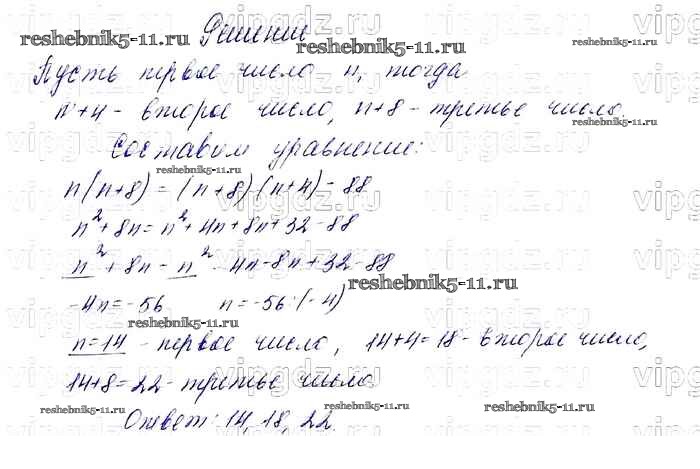 Решение
Пусть первое число n, тогда
n+4 - второе число, n+8 - третье число.
Составим уравнение:
n(n+8) = (n+8)(n+4) - 88
n²+8n = n²+4n+8n+32-88
n²+8n - n² - 4n-8n+32-88
-4n=-56 n=-56:(-4)
n=14 - первое число, 14+4=18 - второе число,
14+8=22 - третье число.
Ответ: 14, 18, 22.
reshebnik5-11.ru
reshebnik5-11.ru
reshebnik5-11.ru
reshebnik5-11.ru
reshebnik5-11.ru
reshebnik5-11.ru
reshebnik5-11.ru
reshebnik5-11.ru
reshebnik5-11.ru
vipgdz.ru